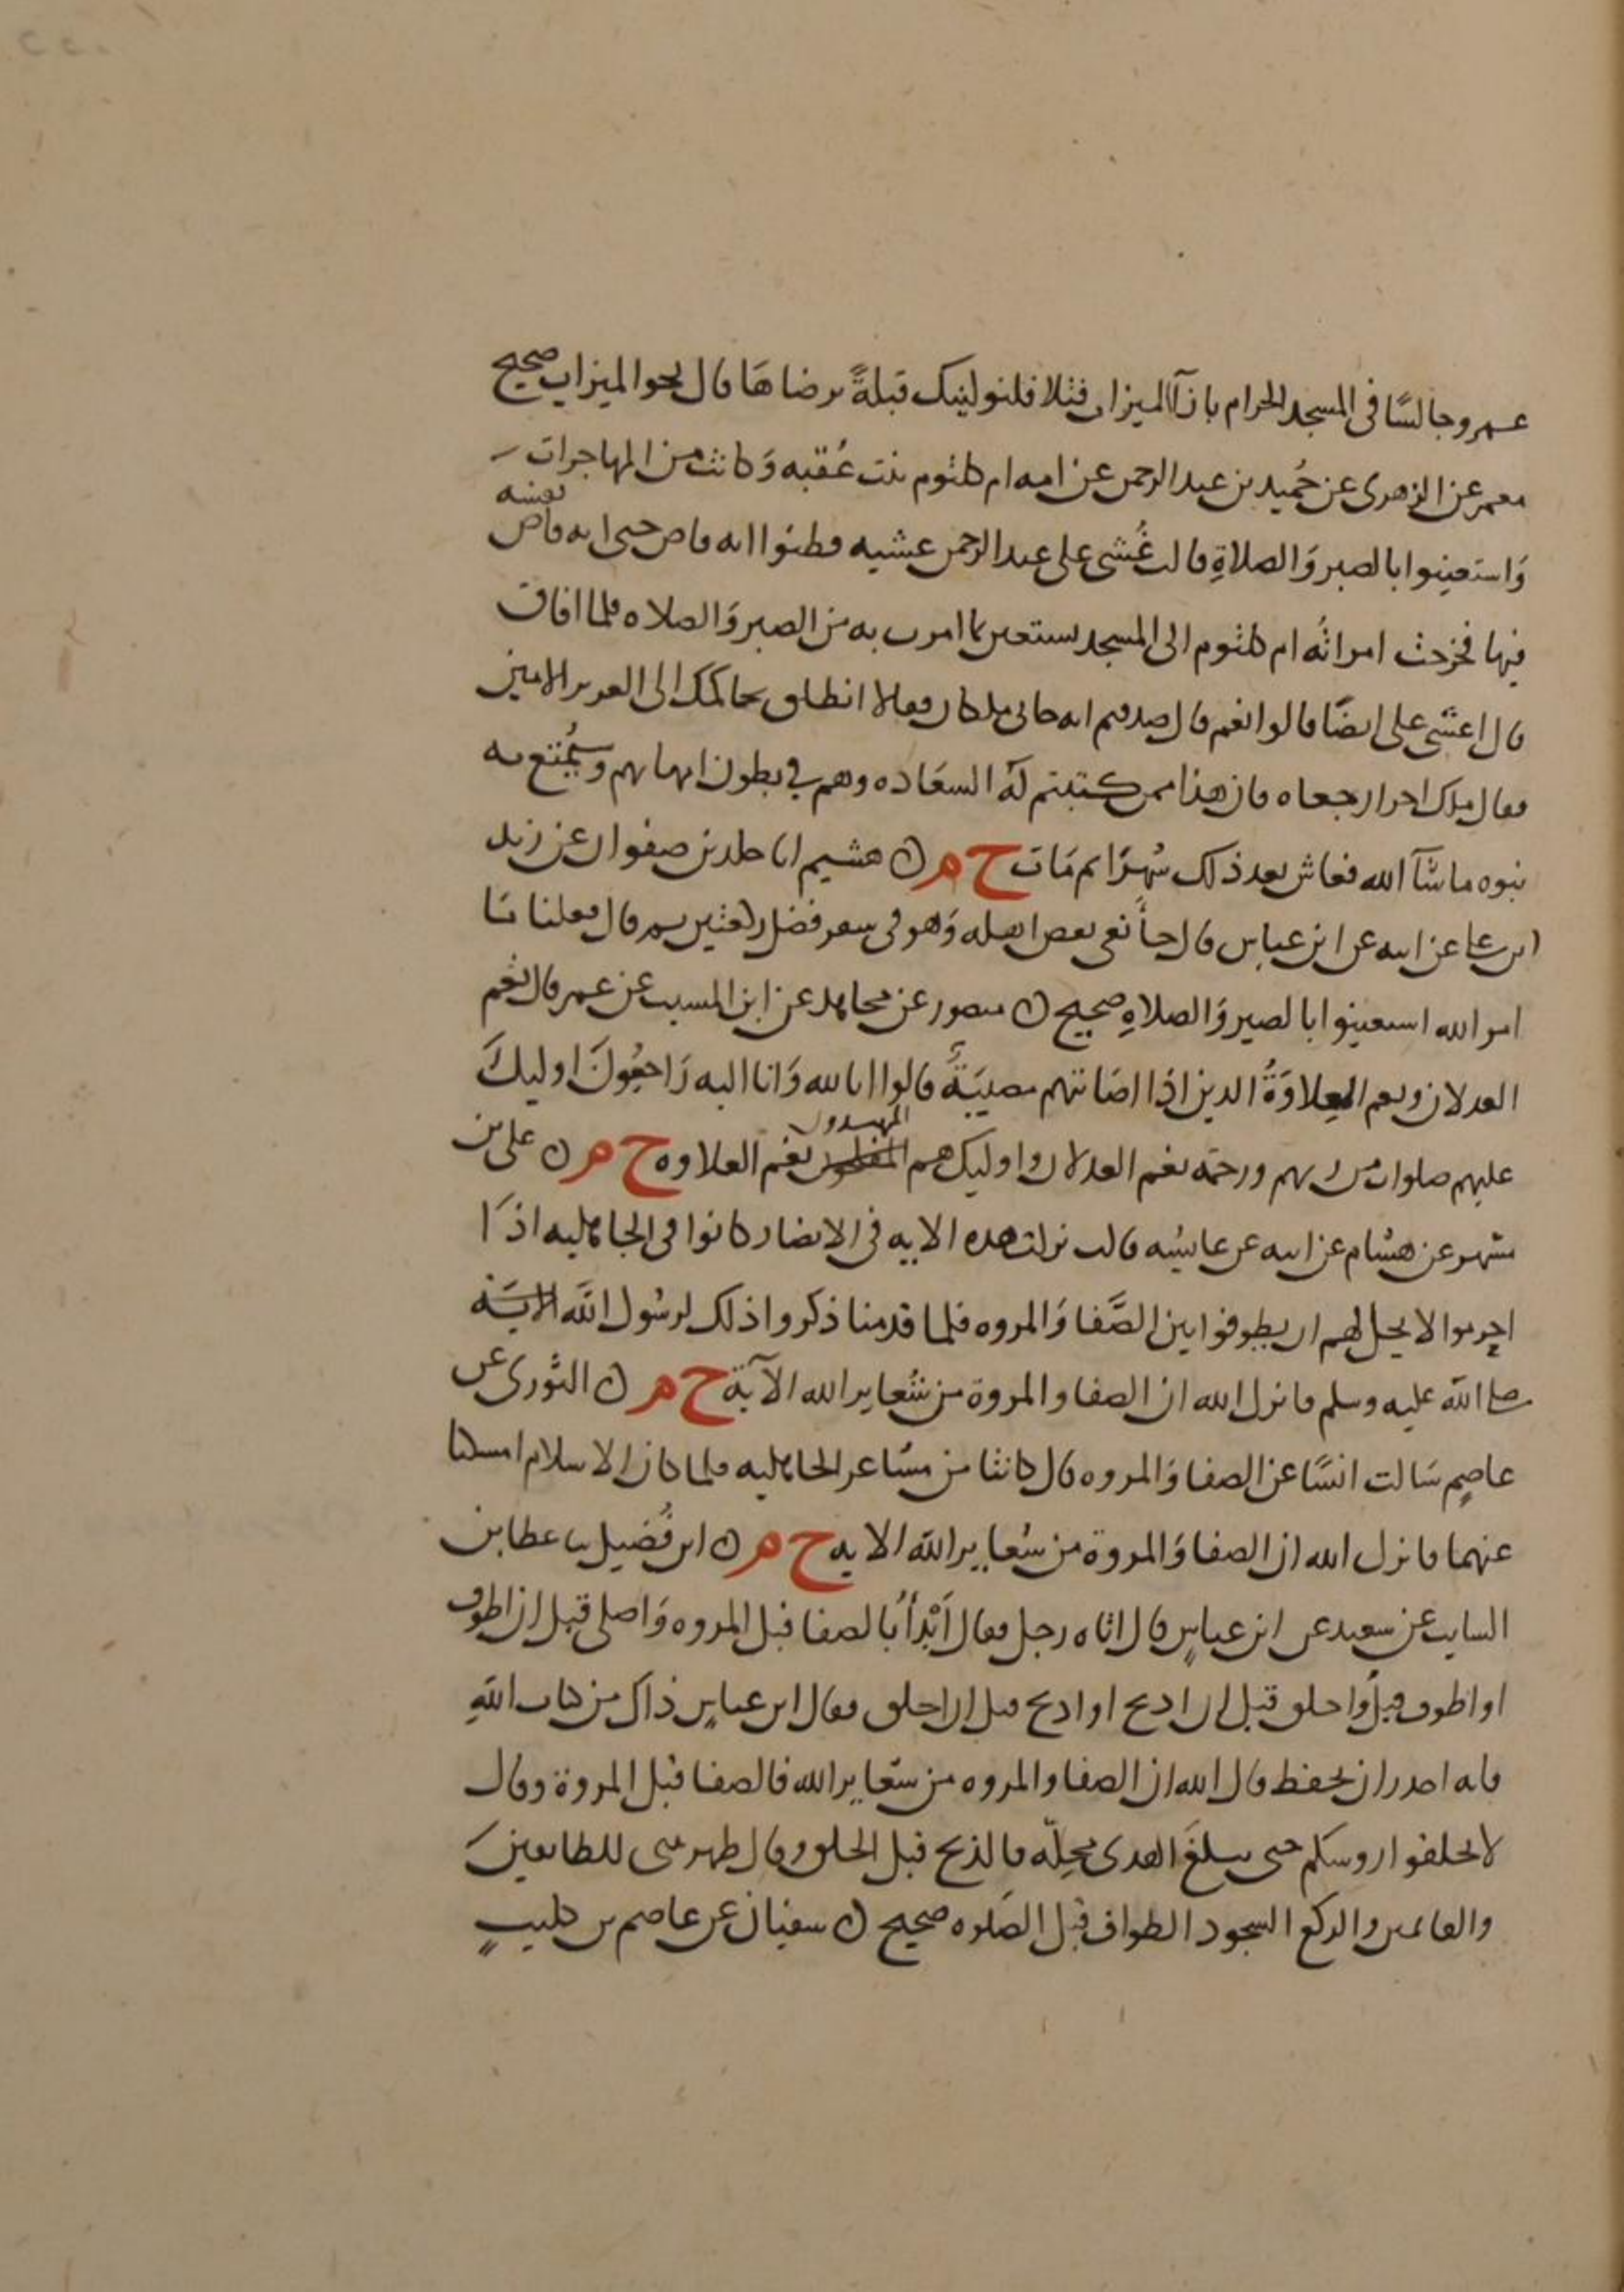 عمرو جالسًا في المسجد الحرام بازآ الميزاب فتلا فلنولينك قبلةً ترضاها قال نحو الميزاب صحيح
معمر عن الزهرى عن حُميد بن عبد الرحمن عن امه ام كلثوم بنت عُقبه وَكانت من المهاجرات
نفسه
وَاستعينوا بالصبر وَالصلاةِ قالت غُشى على عبد الرحمن غشيه فظنوا انه فاض حتى انه فاض
فيها فخرجت امراتُه ام كلثوم الى المسجد تستعين بما امرت به من الصبر وَالصلاه فلما افاق
قال اغشى على ايضًا قالوا نعم قال صدقتم انه جانى ملكان فقالا انطلق نحاكمك الى العزيز الامين
فقال ملك اخر ارجعاه فان هذا ممن كتبتم لَهُ السعَاده وهم في بطون امهاتهم وسيُمتّع به
بنوه ما شآ الله فعاش بعد ذلك شهرًا ثم مَات خ م ن هشيم انا خلد بن صفوان عن زيد
ابن على عن ابيه عن ابن عباس قال جاَ نعى بعض اهله وَهو في سفر فصلى ركعتين ثم قال فعلنا مَا
امر الله استعينوا بالصبر وَالصلاهِ صحيح ن منصور عن مجاهد عن ابن المسيب عن عمر قال نعْم
العدلان ونعم العِلاوَةُ الذين اذَا اصَابتهم مصيبَةٌ قالوا انا لله وَانا اليه رَاجعُونَ اوليكَ
المهتدون
عليهم صلوات من ربهم ورحمَه نعم العدلان واوليك هم المفلحون نعم العلاوه خ م ن على بن
مسهر عن هشام عن ابيه عن عايشه قالت نزلت هذه الايه في الانصار كانوا في الجاهليه اذَا
احرموا لا يحل لهم ان يطوفوا بين الصَّفا وَالمروه فلما قدمنا ذكروا ذلك لرسُول الله الايَـه
صلى الله عليه وسلم فانزل الله ان الصفا والمروة من شعاير الله الآية خ م ن الثورى عن
عاصمٍ سَالت انسًا عن الصفا وَالمروه قال كانتا من مشَاعر الجاهليه فلما كان الاسلام امسكنا
عنهما فانزل الله ان الصفا وَالمروة من شعاير الله الايه خ م ن ابن فُضيل ثنا عطا بن
السايب عن سعيد عن ابن عباسٍ قال اتاه رجل فقال أَبْدأُ بالصفا قبل المروه وَاصلى قبل ان اطوف
او اطوف قبلُ وَاحلق قبل ان اذبح او اذبح قبل ان احلق فقال ابن عباسٍ ذاك من كتاب اللهِ
فانه اجدر ان يحفظ قال الله ان الصفا والمروه من شعَاير الله فالصفا قبل المروة وقال
لا تحلقوا روسكم حتى يبلغَ الهدى محِلّه فالذبح قبل الحلق وقال طهر بيتى للطايفينَ
والقايمين والركع السجود الطواف قبل الصَلوه صحيح ن سفيان عن عاصم بن كليبٍ